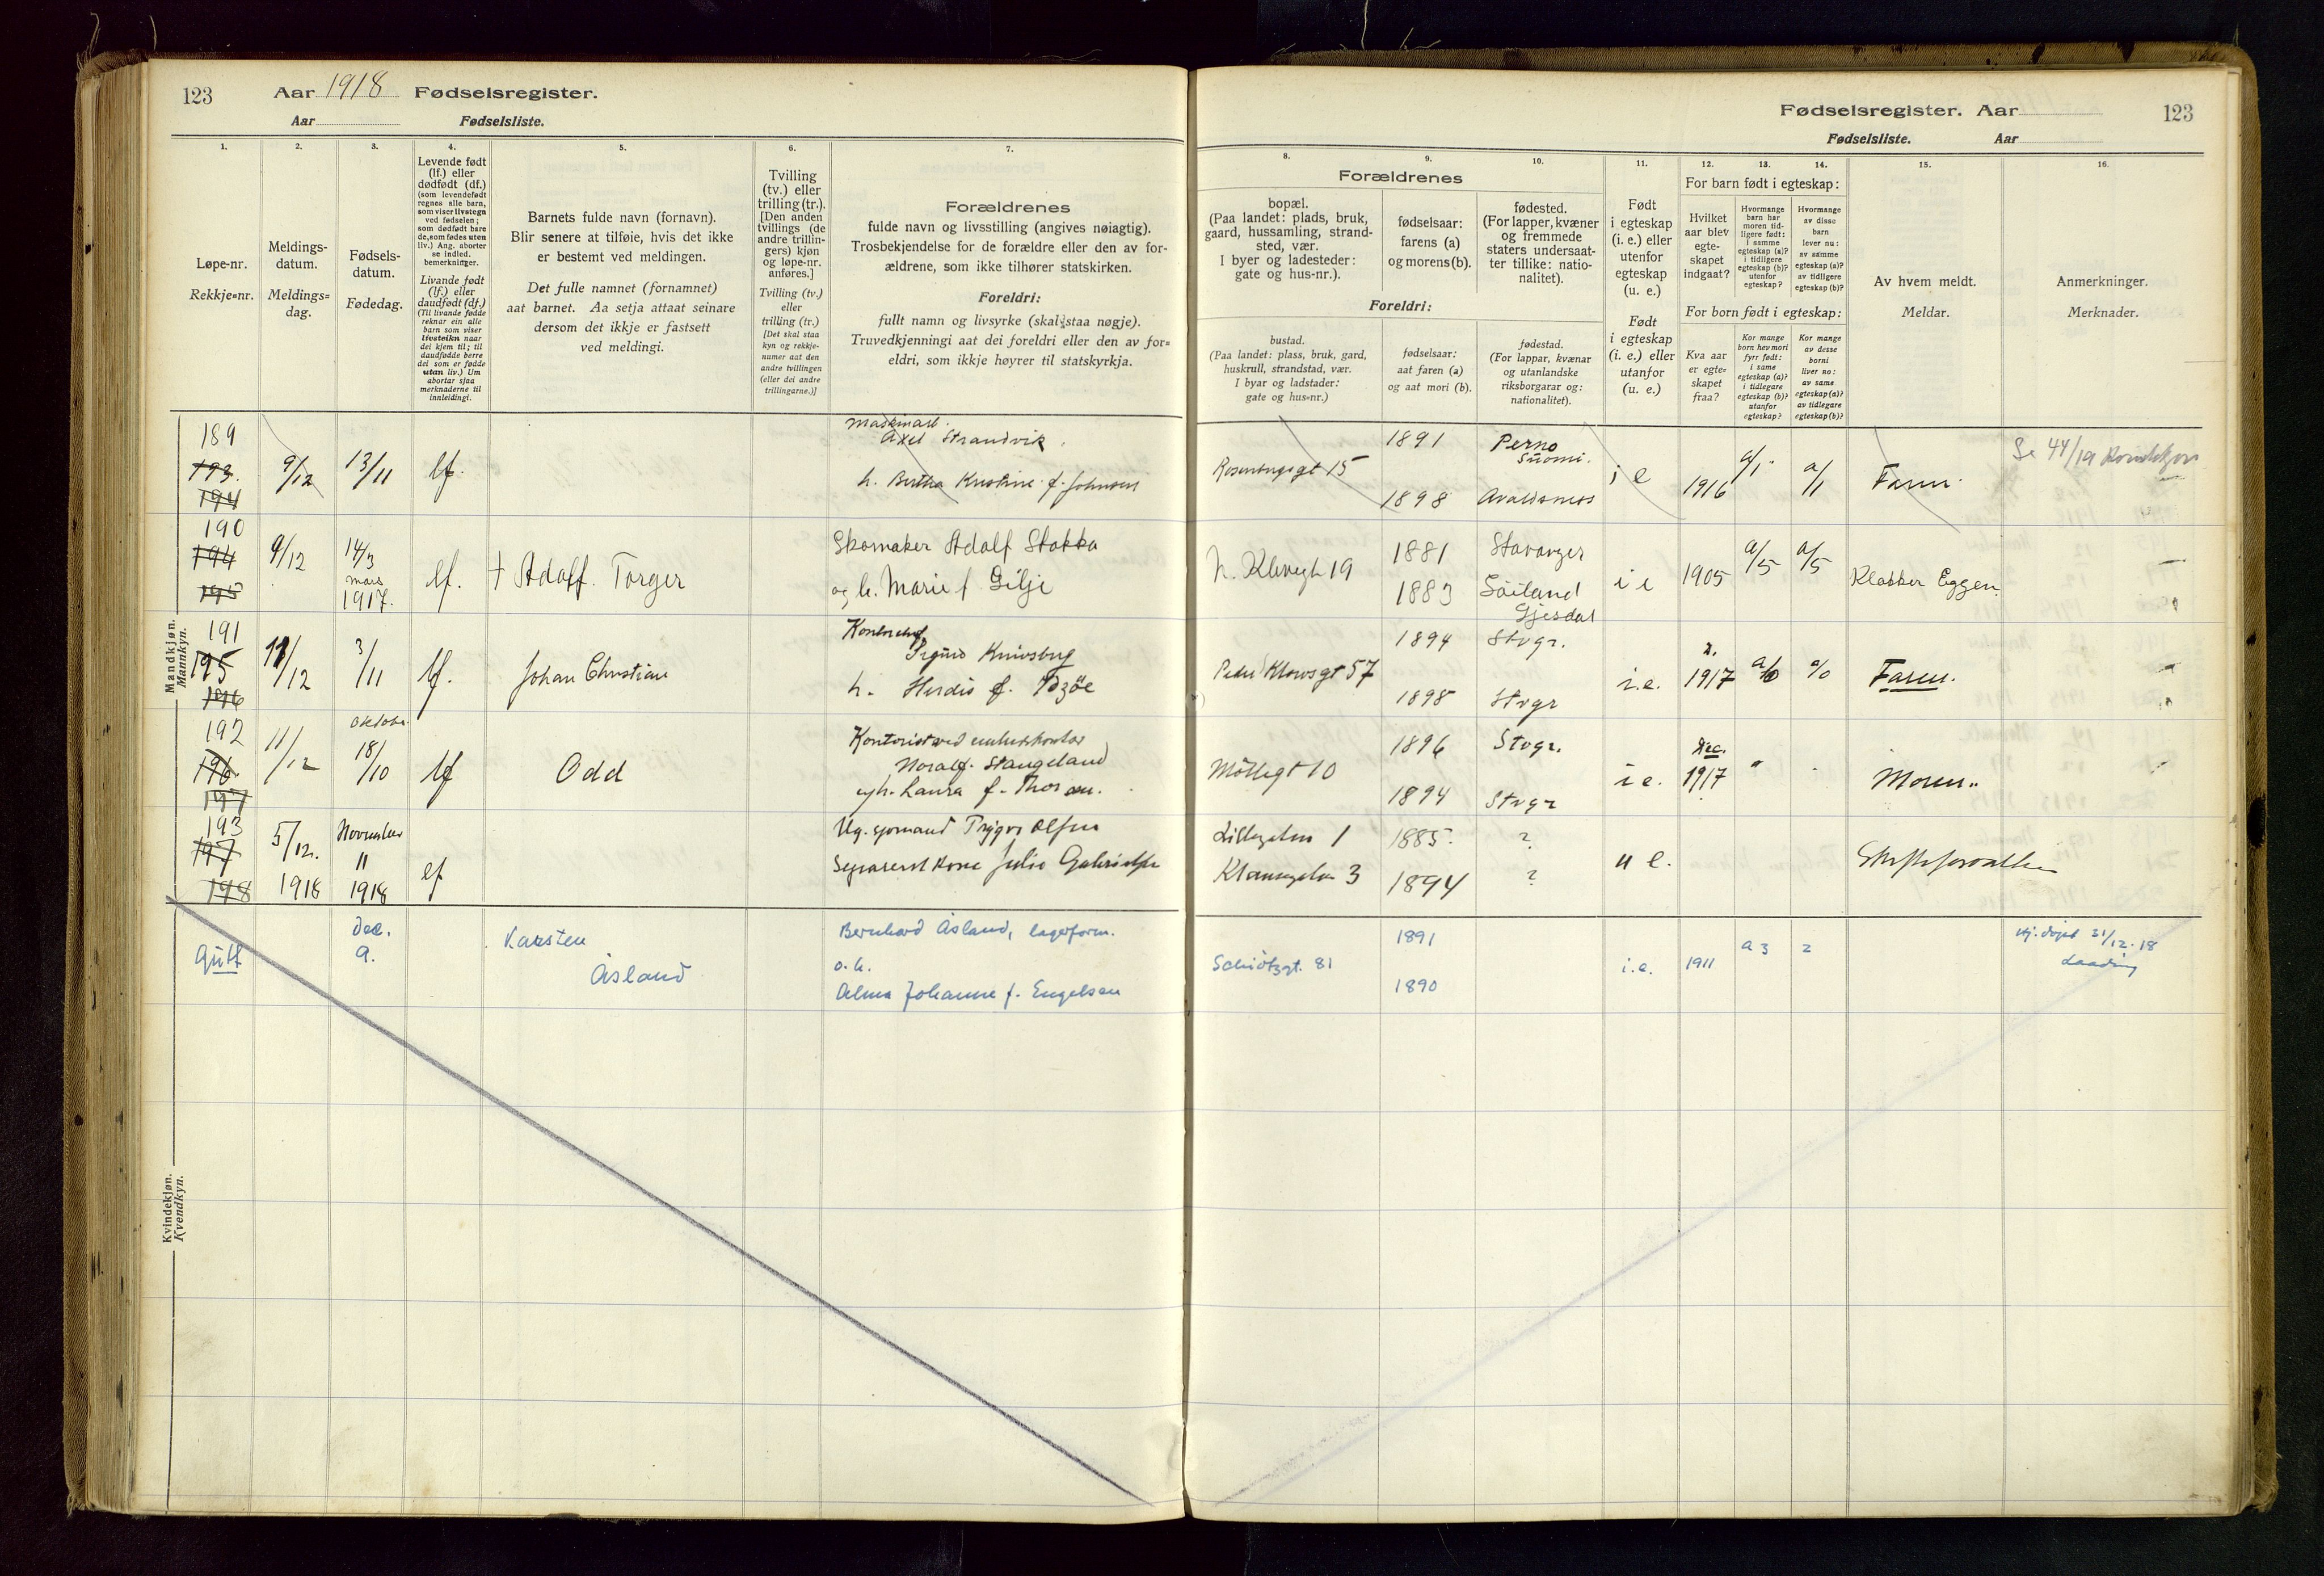 123 Aar 1918 Fødselsregister.
Aar Fødselsliste.
1.
Løpe-nr.
Rekkje=nr.
2.
Meldings-
datum.
Meldings=
dag.
3.
Fødsels-
datum.
Fødedag.
4.
Levende født
(lf.) eller
dødfødt (df.)
(som levendefødt
regnes alle barn,
som viser livstegn
ved fødselen;
som dødfødt bare
de, som fødes uten
liv.) Ang. aborter
se indled.
bemerkninger.
Livande født
(lf.) eller
daudfødt (df.)
(Til livande fødde
reknar ein alle
barn som viser
livsteikn naar
dei kjem til; til
daudfødde berre
dei som er fødde
utan liv.) Um
abortar sjaa
merknaderne til
innleidingi.
5.
Barnets fulde navn (fornavn).
Blir senere at tilføie, hvis det ikke
er bestemt ved meldingen.
Det fulle namnet (fornamnet)
aat barnet. Aa setja attaat seinare
dersom det ikkje er fastsett
ved meldingi.
6.
Tvilling
(tv.) eller
trilling (tr.).
[Den anden
tvillings (de
andre trillin-
gers) kjøn
og løpe-nr.
anføres.]
Tvilling (tv.)
eller
trilling (tr.)
[Det skal staa
kyn og rekkje-
numer aat den
andre tvillingen
(eller dei andre
trillingarne.)]
7.
Forældrenes
fulde navn og livsstilling (angives nøiagtig).
Trosbekjendelse for de forældre eller den av for-
ældrene, som ikke tilhører statskirken.
Foreldri:
fullt namn og livsyrke (skal staa nøgje).
Truvedkjenningi aat dei foreldri eller den av for=
eldri, som ikkje høyrer til statskyrkja.
Mandkjøn.
Mannkyn.
189
193.
194
9/12
13/11
lf.
Axel Strandvik
h. Bertha Kristine f. Johnsen
190
194
195
9/12
14/3
mars
1917.
lf.
† Adolf. Torger
Skomaker Adolf Stokka
og h. Marie f Gilje
191
195
196
11/12
3/11
lf.
Johan Christian
h. Herdis f.
192
196
197
11/12
oktober
18/10
lf
Odd
Noralf. Stangeland
h. Laura f.
193
197
198
5/12.
1918
November
11
1918
lf
Ug. sjømand Trygve Olsen
Separert kone Julie Gabrielsen
Kvindekjøn.
Kvendkyn.
Gutt
Dec.
9.
Karsten
Åsland
Bernhard Åsland, lagerform.
o. h.
Alma Johanne f. Engelsen
Fødselsregister. Aar 123
Fødselsliste. Aar
8.
Forældrenes
bopæl.
(Paa landet: plads, bruk,
gaard, hussamling, strand-
sted, vær.
I byer og ladesteder:
gate og hus-nr.).
9.
fødselsaar:
farens (a)
og morens (b).
10.
fødested.
(For lapper, kvæner
og fremmede
staters undersaat-
ter tillike: natio-
nalitet).
Foreldri:
bustad.
(Paa landet: plass, bruk, gard,
huskrull, strandstad, vær.
I byar og ladstader:
gate og hus=nr.)
fødselsaar:
aat faren (a)
og aat mori (b).
fødestad.
(For lappar, kvænar
og utanlandske
riksborgarar og:
nationalitet).
11.
Født
i egteskap
(i. e.) eller
utenfor
egteskap
(u. e.)
Født
i egteskap
(i. e.) eller
utanfor
(u. e.)
12. 13. 14.
For barn født i egteskap:
Hvilket
aar blev
egte-
skapet
indgaat?
Hvormange
barn har
moren tid-
ligere født:
i samme
egteskap (a)?
i tidligere
egteskap (b)?
utenfor
egteskap?
Hvormange
av disse
barn
lever nu:
av samme
egteskap (a)?
av tidligere
egteskap (b)?
For born født i egteskap:
Kva aar
er egte-
skapet
fraa?
Kor mange
born hev mori
fyrr født:
i same
egteskap (a)?
i tidlegare
egteskap (b)?
utanfor
egteskap?
Kor mange
av desse
borni
liver no:
av same
egteskap (a)?
av tidlegare
egteskap (b)?
15.
Av hvem meldt.
Meldar.
16.
Anmerkninger.
Merknader.
Rosenbergsgt 15
1891
1898
Perno
Suomi.
Avaldsnes
i e
1916
a/1
a/1
Faren.
Se 44/19 Kvindekjøn
19
1881
1883
Stavanger
Söiland
Gjesdal
i e
1905
a/5
a/5
Klokker Eggen.
Peder Klowsgt 57
1894
1898
Stvgr.
Stvgr
i. e.
2.
1917
a/0
a/0
Faren.
Möllegt 10
1896
1894
Stvgr.
Stvgr
i e.
Dec.
1917
Moren.
1
3
1885.
1894
?
?
u e.
Schiötzgt. 81
1891
1890
i. e.
1911
a 3
2
Hj. døpt 31/12. 18